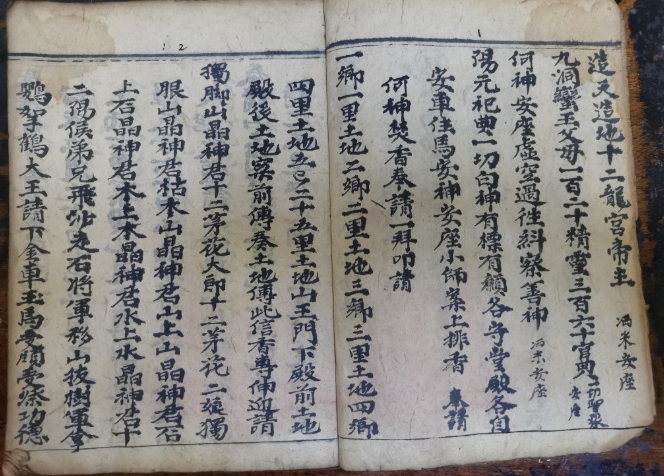 1
造天造地十二龍宮帝主 馮來安座
九洞蠻王父母一百二十精靈三百六十官男 一切聖眾安座
何神安座虛空過往糾察善神 馮來安座
陽元祀典一切白神有標有願各守堂殿各自
安車住馬安神安座小師案上排香 奉請
何神焚香奉請一拜叩請
一鄉一里土地二鄉二里土地三鄉三里土地四鄉
2
四里土地五
二十五里土地山王門下殿前土地
殿後土地案前傳奏土地傳此信香專伸迎請
獨脚山晶神君十二茅花大郎十二茅花二娘獨
眼山晶神君枯木山晶神君山上山晶神君石
上石晶神君木上木晶神君水上水晶神君十
二陽侯弟兄飛沙走石將軍移山拔樹軍
鶴大王請下金車玉馬受領受祭功德